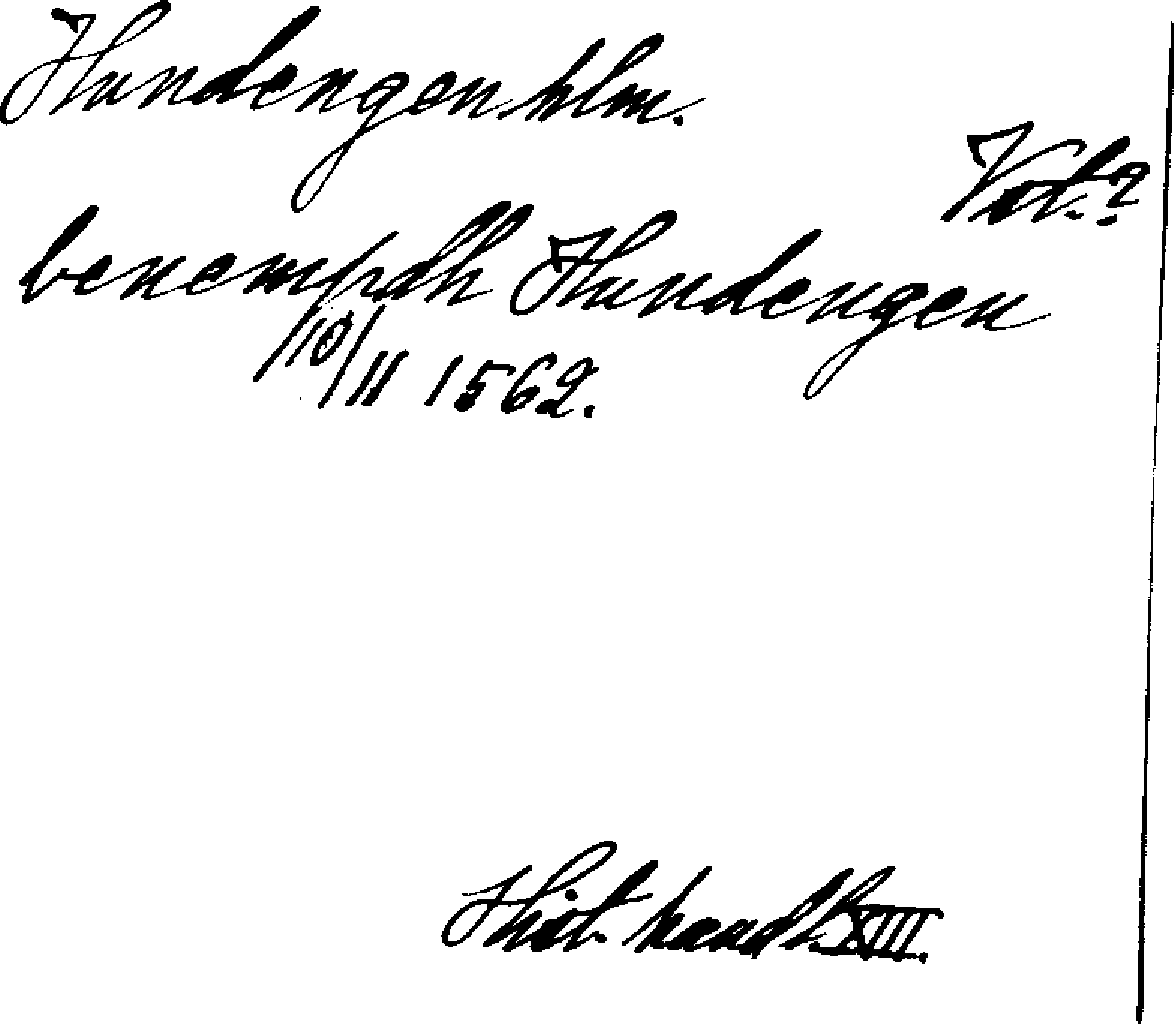 Hundengen hlm.
Vst.?
benempdh Hundengen
10/11 1562.
Hist. handl. XIII.